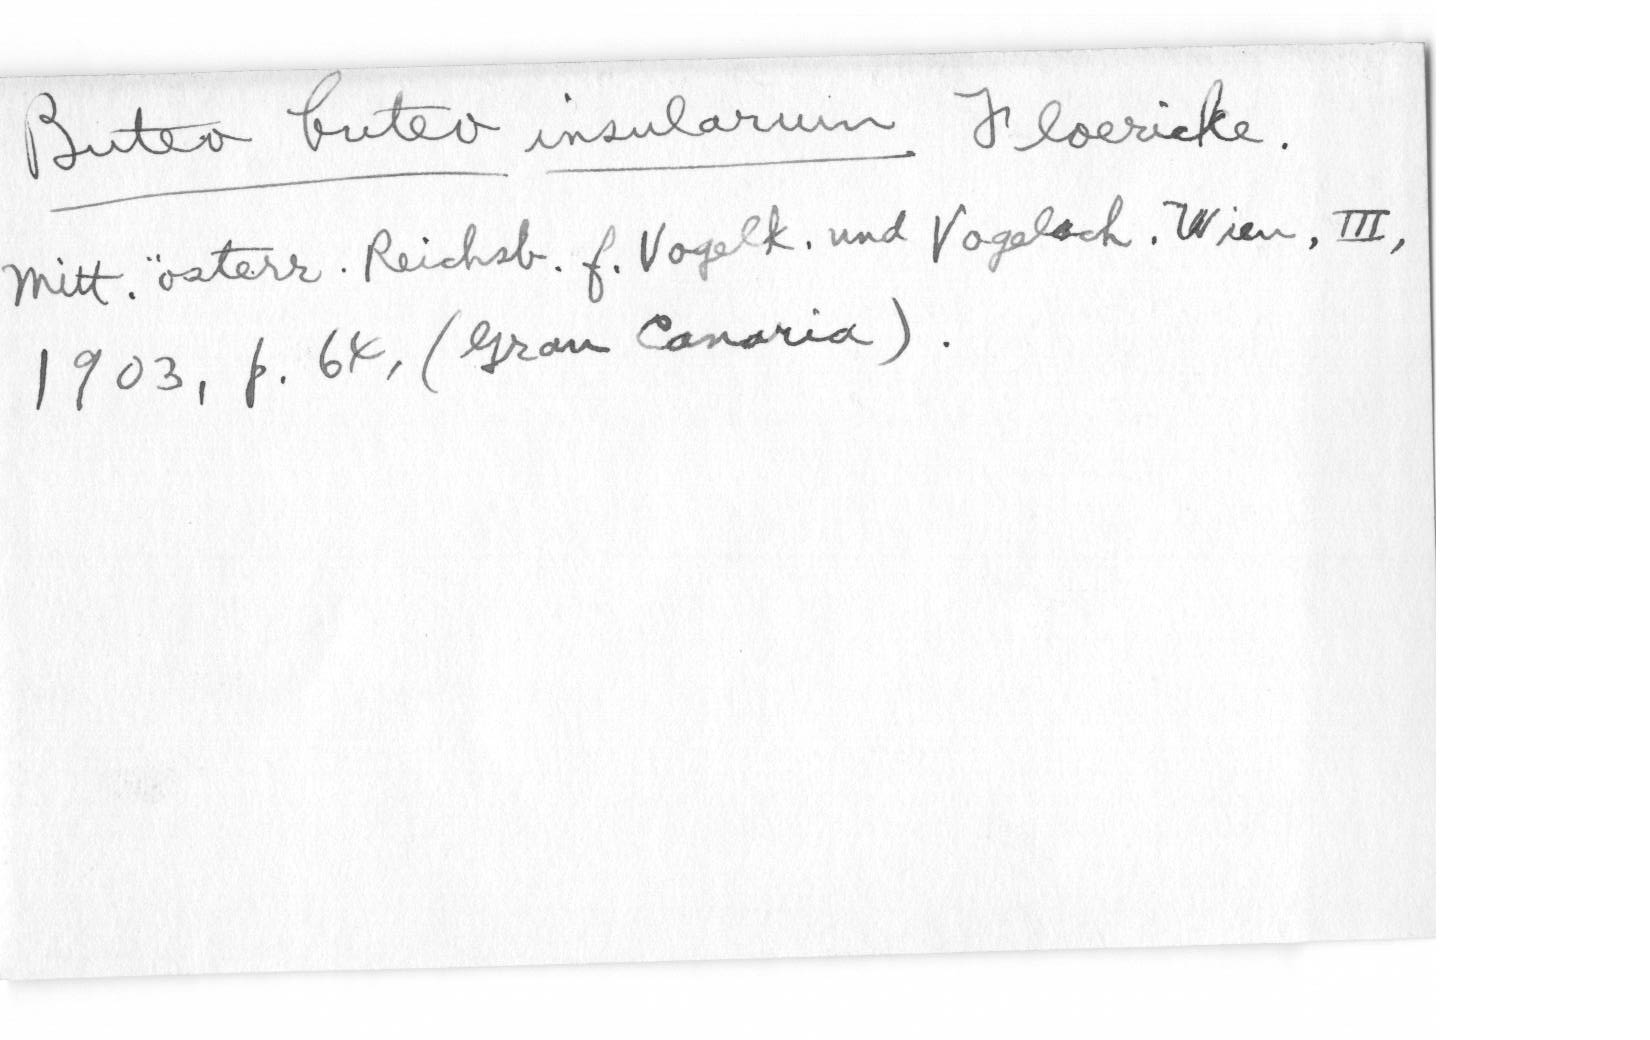 Buteo buteo insularum Floericke.
Mitt. österr. Reichsb. f. Vogelk. und Vogelsch. Wien, III,
1903, p. 64, (Gran Canaria).